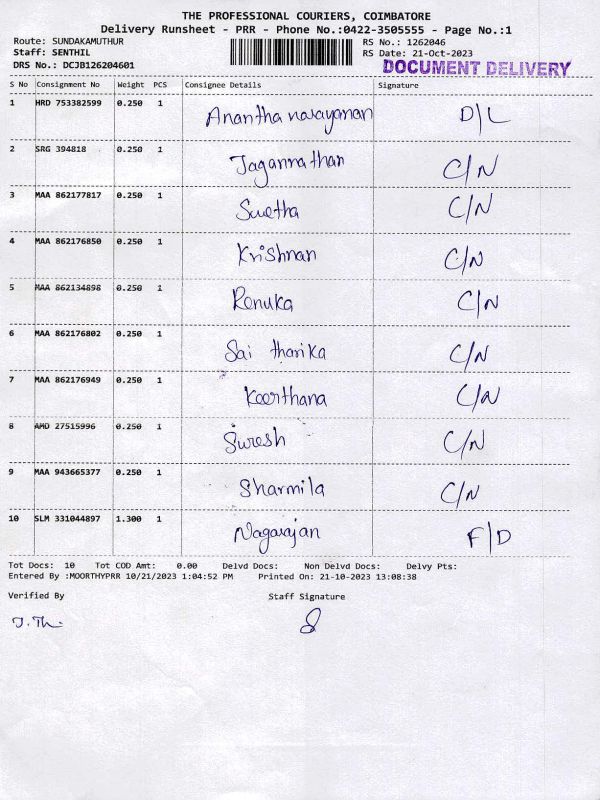 THE PROFESSIONAL COURIERS, COIMBATORE
Delivery Runsheet - PRR - Phone No.:0422-3505555 - Page No.:1
Route: SUNDAKAMUTHUR RS No.: 1262046
Staff: SENTHIL RS Date: 21-Oct-2023
DRS No.: DCJB126204601 DOCUMENT DELIVERY
S No Consignment No Weight PCS Consignee Details Signature
1 HRD 753382599 0.250 1 Anantha narayanan D/L
2 SRG 394818 0.250 1 Jagannathan C/N
3 MAA 862177817 0.250 1 Swetha C/N
4 MAA 862176850 0.250 1 Krishnan C/N
5 MAA 862134898 0.250 1 Renuka C/N
6 MAA 862176802 0.250 1 Sai tharika C/N
7 MAA 862176949 0.250 1 Keerthana C/N
8 AMD 27515996 0.250 1 Suresh C/N
9 MAA 943665377 0.250 1 Sharmila C/N
10 SLM 331044897 1.300 1 Nagarajan F/D
Tot Docs: 10 Tot COD Amt: 0.00 Delvd Docs: Non Delvd Docs: Delvy Pts:
Entered By :MOORTHYPRR 10/21/2023 1:04:52 PM Printed On: 21-10-2023 13:08:38
Verified By Staff Signature